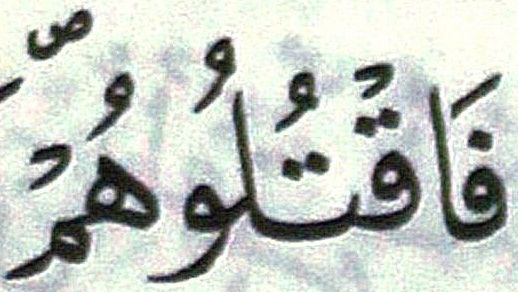 فَاقْتُلُوهُمْ ۖ